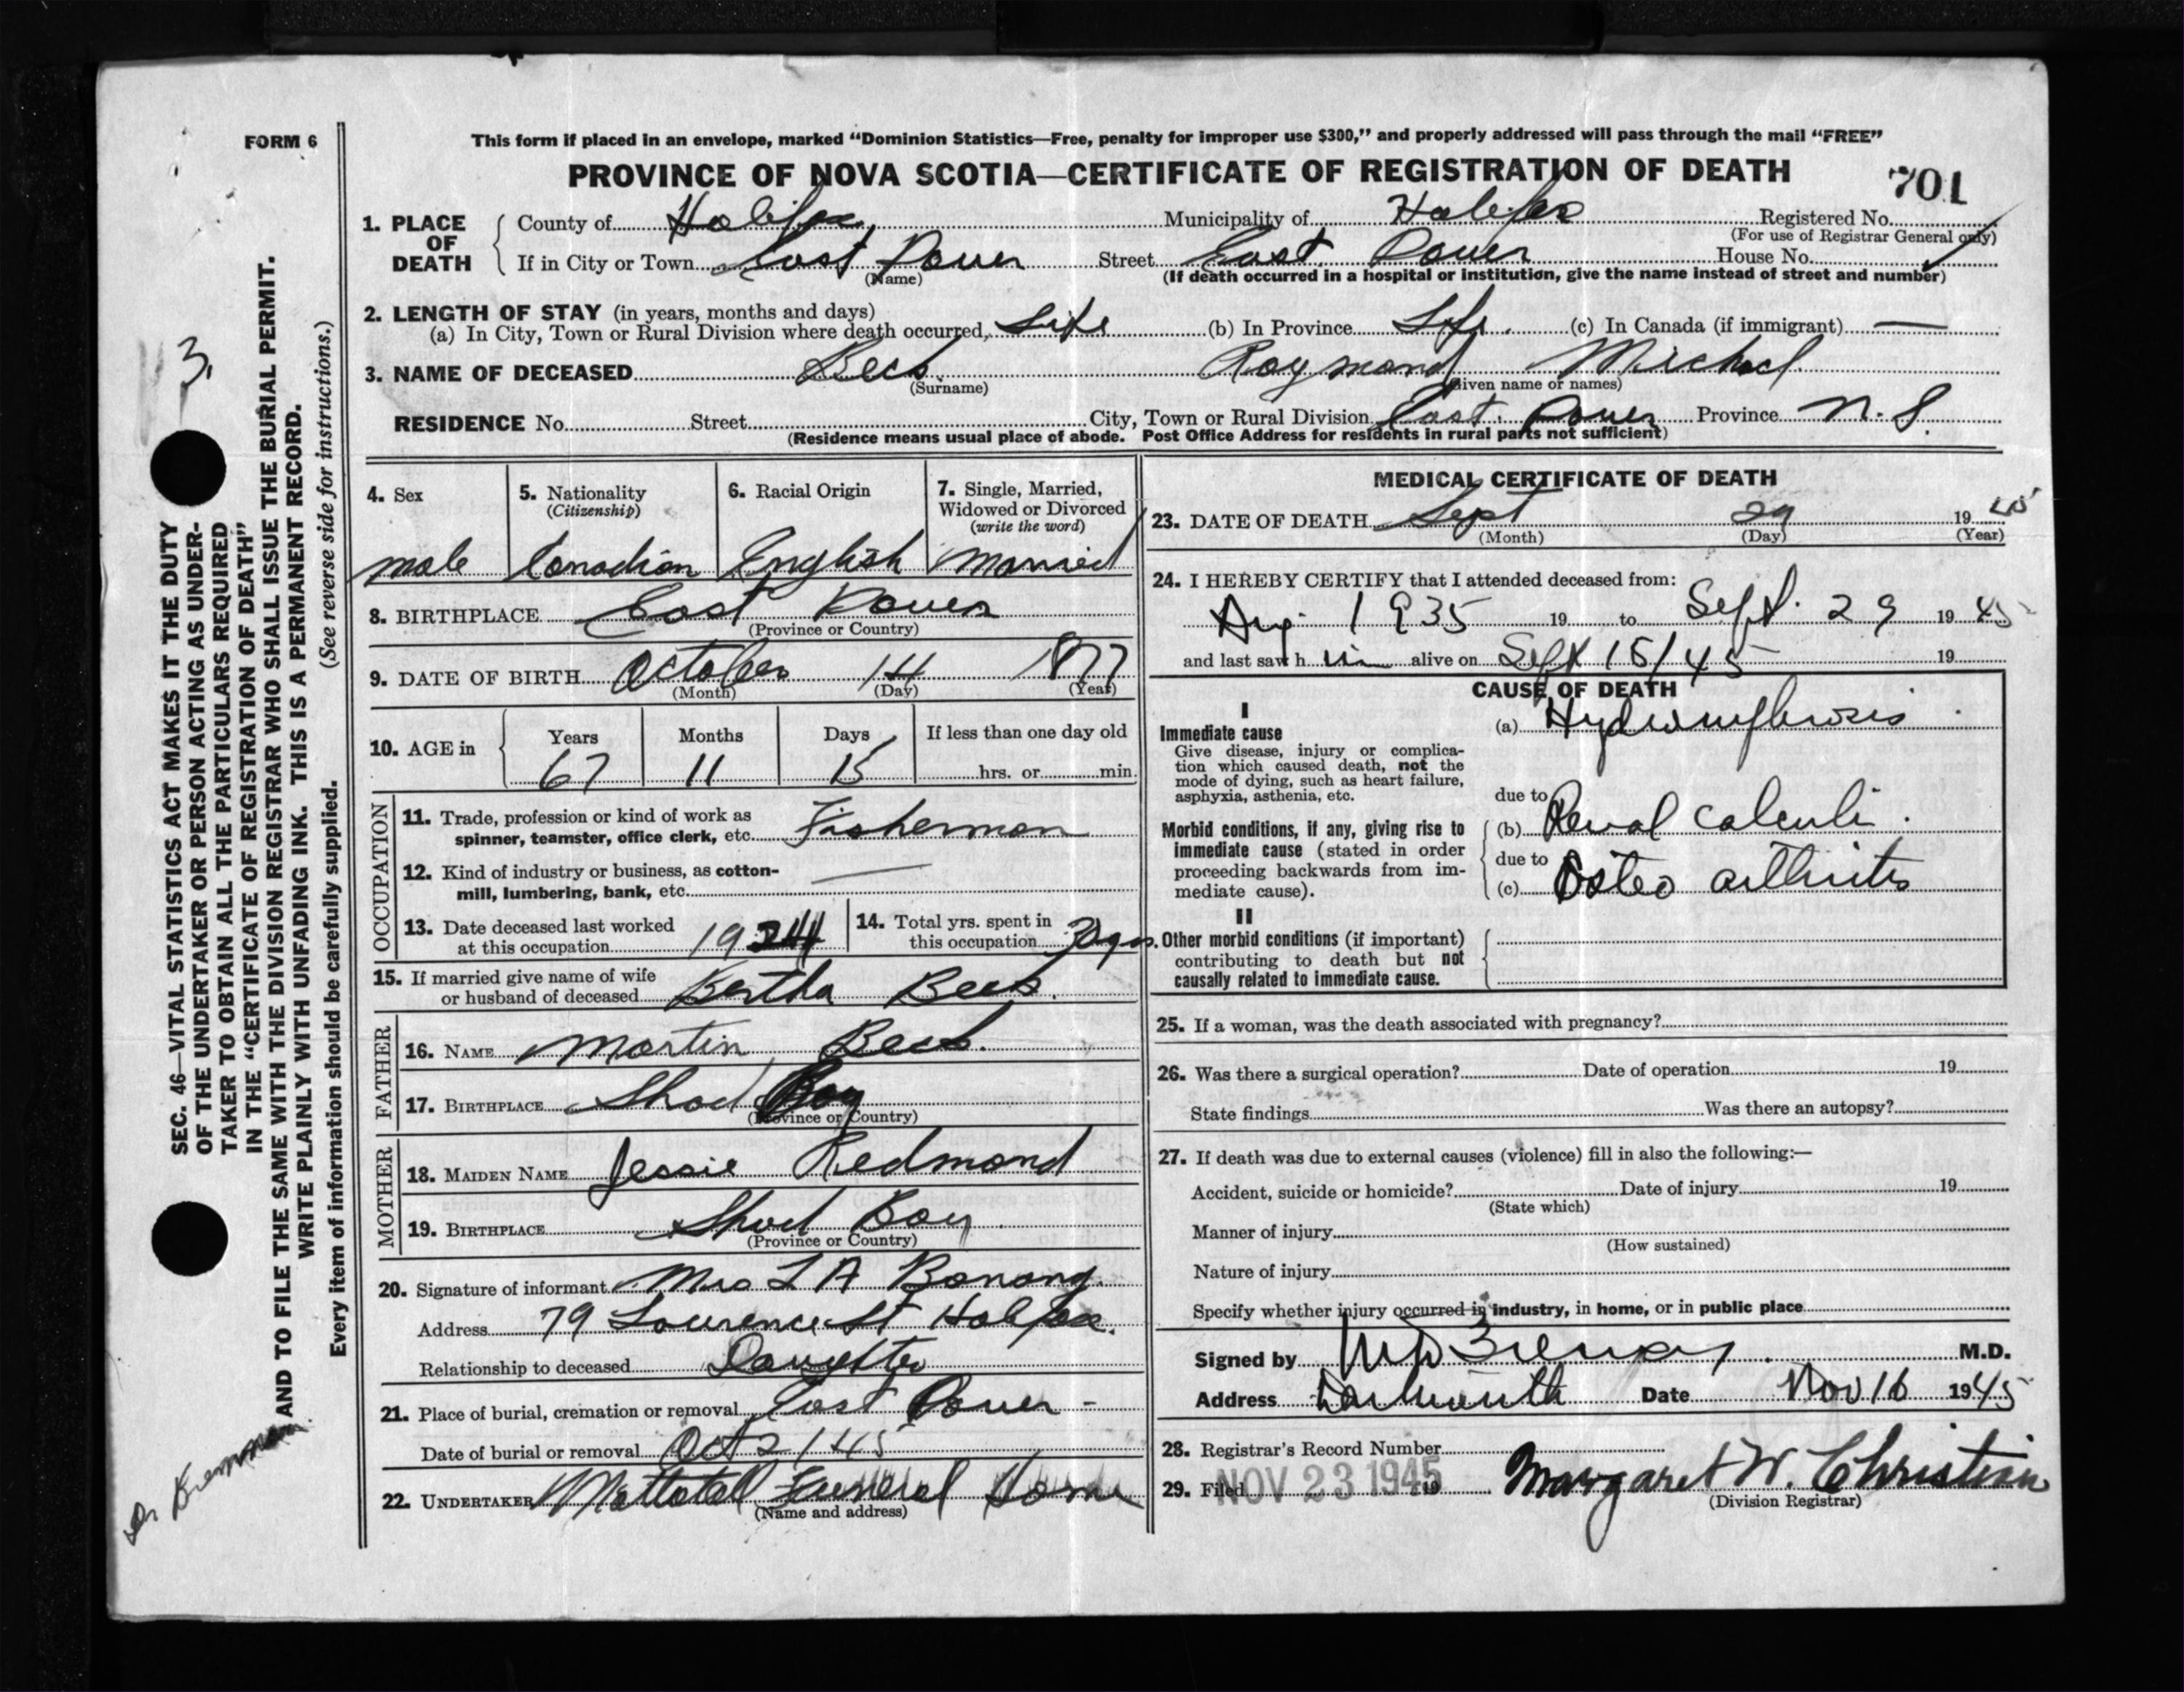 FORM 6
This form if placed in an envelope, marked “Dominion Statistics—Free, penalty for improper use $300,” and properly addressed will pass through the mail “FREE”
PROVINCE OF NOVA SCOTIA—CERTIFICATE OF REGISTRATION OF DEATH
701
1. PLACE OF DEATH
County of Halifax Municipality of Halifax Registered No.
(For use of Registrar General only)
If in City or Town East Dover Street East Dover House No.
(Name) (If death occurred in a hospital or institution, give the name instead of street and number)
2. LENGTH OF STAY (in years, months and days)
(a) In City, Town or Rural Division where death occurred Life (b) In Province Life. (c) In Canada (if immigrant) —
3. NAME OF DECEASED Beck Raymond Michael
(Surname) (Given name or names)
RESIDENCE No. Street City, Town or Rural Division East Dover Province N.S.
(Residence means usual place of abode. Post Office Address for residents in rural parts not sufficient)
4. Sex male
5. Nationality (Citizenship) Canadian
6. Racial Origin English
7. Single, Married, Widowed or Divorced (write the word) Married
8. BIRTHPLACE East Dover
(Province or Country)
9. DATE OF BIRTH October 14 1877
(Month) (Day) (Year)
10. AGE in Years Months Days If less than one day old
67 11 15 hrs. or min.
OCCUPATION
11. Trade, profession or kind of work as
spinner, teamster, office clerk, etc. Fisherman
12. Kind of industry or business, as cotton-
mill, lumbering, bank, etc. —
13. Date deceased last worked
at this occupation 1944
14. Total yrs. spent in
this occupation yrs.
15. If married give name of wife
or husband of deceased Bertha Beck.
FATHER
16. NAME Martin Beck.
17. BIRTHPLACE Shad Bay
(Province or Country)
MOTHER
18. MAIDEN NAME Jessie Redmond
19. BIRTHPLACE Shad Bay
(Province or Country)
20. Signature of informant Mrs L A Bonang.
Address 79 Lawrence St Halifax.
Relationship to deceased Daughter
21. Place of burial, cremation or removal East Dover -
Date of burial or removal Oct 2/45
22. UNDERTAKER Mattatall Funeral Home
(Name and address)
MEDICAL CERTIFICATE OF DEATH
23. DATE OF DEATH Sept 29 1945
(Month) (Day) (Year)
24. I HEREBY CERTIFY that I attended deceased from:
Aug 1935 19 to Sept. 29 1945
and last saw him alive on Sept 15/45 19
CAUSE OF DEATH
I
Immediate cause
Give disease, injury or complica-
tion which caused death, not the
mode of dying, such as heart failure,
asphyxia, asthenia, etc.
(a) Hydronephrosis
due to
Morbid conditions, if any, giving rise to
immediate cause (stated in order
proceeding backwards from im-
mediate cause).
(b) Renal calculi.
due to
(c) Osteo arthritis
II
Other morbid conditions (if important)
contributing to death but not
causally related to immediate cause.
25. If a woman, was the death associated with pregnancy?
26. Was there a surgical operation? Date of operation 19
State findings Was there an autopsy?
27. If death was due to external causes (violence) fill in also the following:—
Accident, suicide or homicide? Date of injury 19
(State which)
Manner of injury
(How sustained)
Nature of injury
Specify whether injury occurred in industry, in home, or in public place
Signed by M.D.
Address Dartmouth Date Nov 16 1945
28. Registrar's Record Number
29. Filed NOV 23 1945 19 Margaret W. Christian
(Division Registrar)
3,
SEC. 46—VITAL STATISTICS ACT MAKES IT THE DUTY
OF THE UNDERTAKER OR PERSON ACTING AS UNDER-
TAKER TO OBTAIN ALL THE PARTICULARS REQUIRED
IN THE “CERTIFICATE OF REGISTRATION OF DEATH”
AND TO FILE THE SAME WITH THE DIVISION REGISTRAR WHO SHALL ISSUE THE BURIAL PERMIT.
WRITE PLAINLY WITH UNFADING INK. THIS IS A PERMANENT RECORD.
Every item of information should be carefully supplied. (See reverse side for instructions.)
Dr